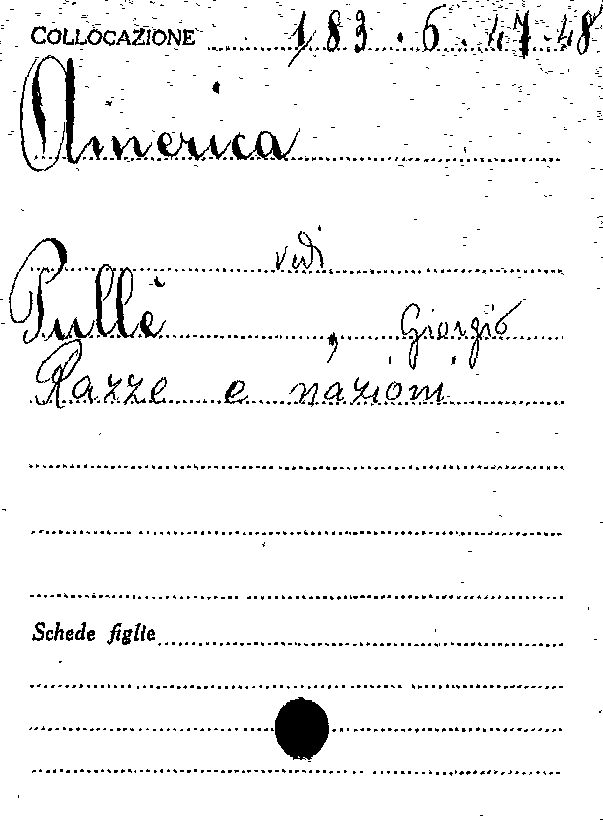 COLLOCAZIONE 183.6.47-48
America
vedi
Pullè, Giorgio
Razze e nazioni
Schede figlie